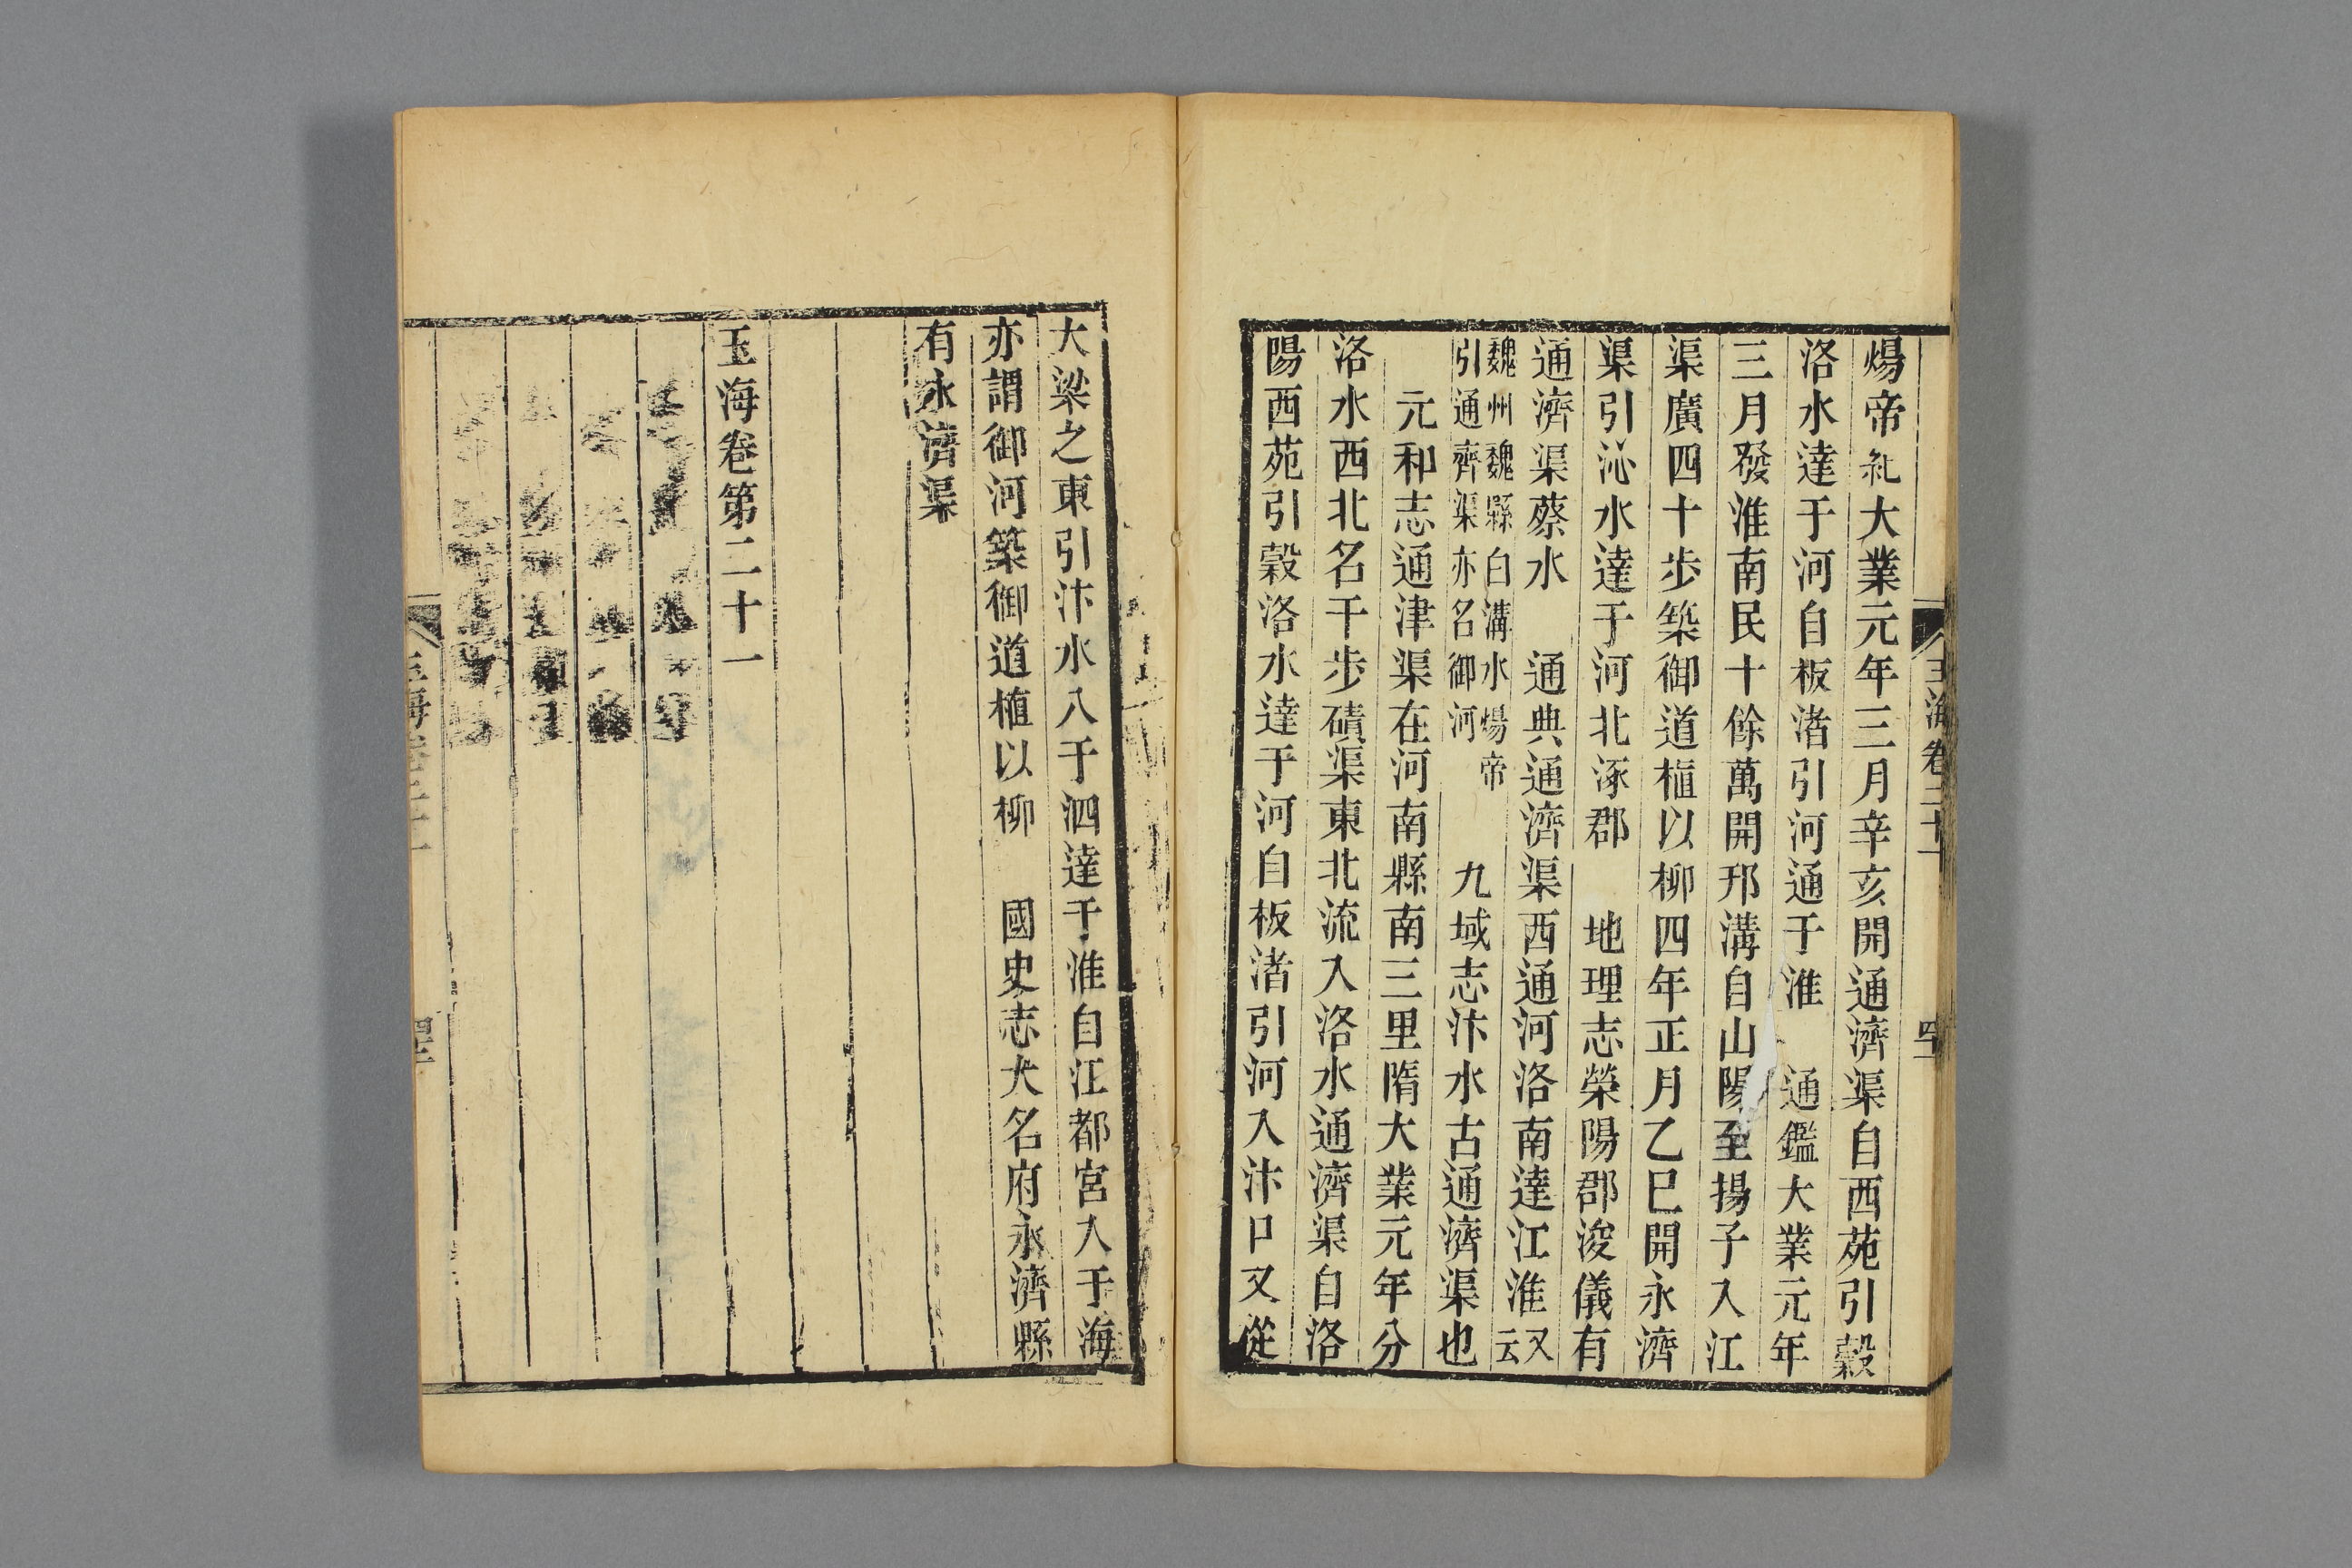 煬帝紀大業元年三月辛亥開通濟渠自西苑引穀
洛水達于河自板渚引河通于淮　通鑑大業元年
三月發淮南民十餘萬開邗溝自山陽至揚子入江
渠廣四十步築御道植以柳四年正月乙巳開永濟
渠引沁水達于河北涿郡　地理志滎陽郡浚儀有
通濟渠蔡水　通典通濟渠西通河洛南達江淮又云
魏州魏縣白溝水煬帝
引通濟渠亦名御河　九域志汴水古通濟渠也
元和志通津渠在河南縣南三里隋大業元年分
洛水西北名千步磧渠東北流入洛水通濟渠自洛
陽西苑引穀洛水達于河自板渚引河入汴口又從
玉海卷二十一
大梁之東引汴水入于泗達于淮自江都宮入于海
亦謂御河築御道植以柳　國史志大名府永濟縣
有永濟渠
玉海卷第二十一